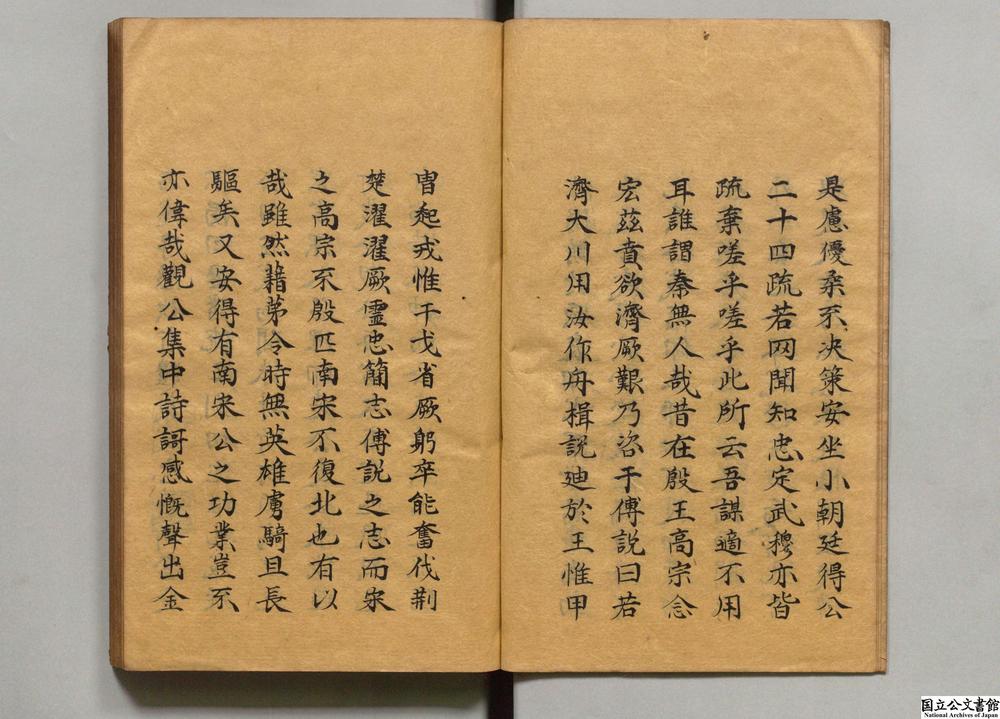 是慮優柔不决策安坐小朝廷得公
二十四疏若罔聞知忠定武穆亦皆
疏棄嗟乎嗟乎此所云吾謀適不用
耳誰謂秦無人哉昔在殷王高宗念
宏茲賁欲濟厥艱乃咨于傅說曰若
濟大川用汝作舟楫說迪於王惟甲
冑起戎惟干戈省厥躬卒能奮伐荆
楚濯濯厥靈忠簡志傅說之志而宋
之高宗不殷匹南宋不復北也有以
哉雖然藉苐令時無英雄虜騎且長
驅矣又安得有南宋公之功業豈不
亦偉哉觀公集中詩謌感慨聲出金
国立公文書館
National Archives of Japan